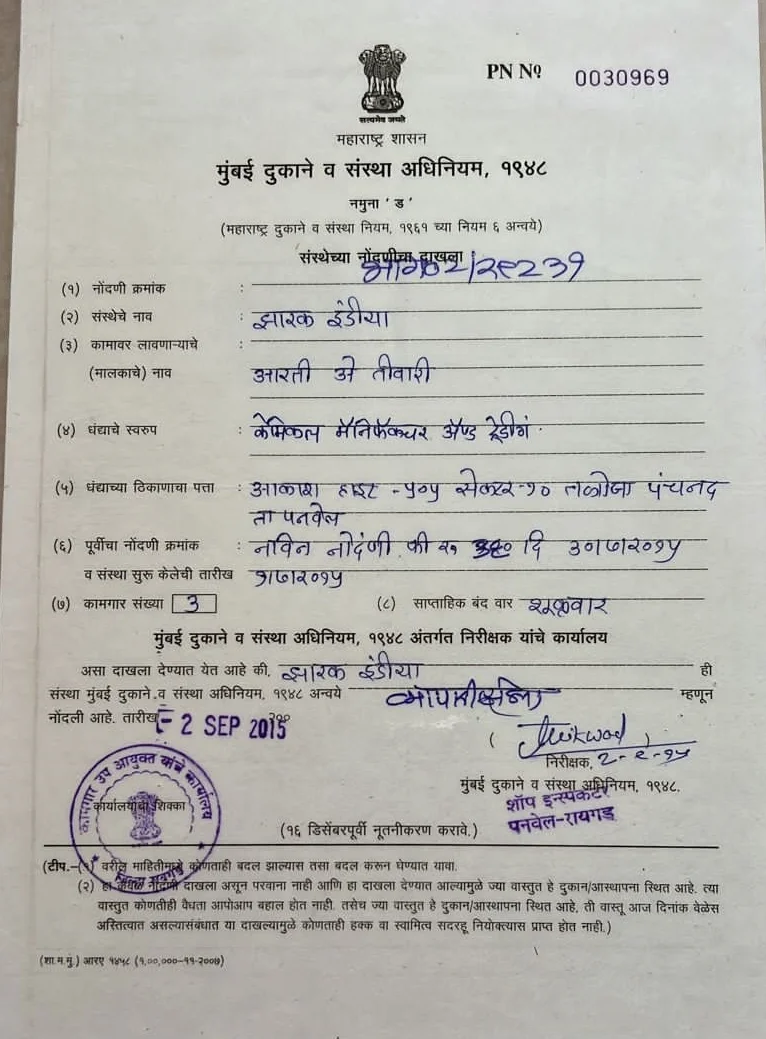 PN Nº 0030969
सत्यमेव जयते
महाराष्ट्र शासन
मुंबई दुकाने व संस्था अधिनियम, १९४८
नमुना ' ड '
(महाराष्ट्र दुकाने व संस्था नियम, १९६१ च्या नियम ६ अन्वये)
संस्थेच्या नोंदणीचा दाखला
(१) नोंदणी क्रमांक :
(२) संस्थेचे नाव : झारक इंडीया
(३) कामावर लावणाऱ्याचे :
(मालकाचे) नाव आरती अे तीवारी
(४) धंद्याचे स्वरुप : केमिकल मॅनिफॅक्चर अॅण्ड ट्रेडींग
(५) धंद्याच्या ठिकाणाचा पत्ता : आकाश हाइट - ५०५ सेक्टर-१० तळोजा पंचनद
ता पनवेल
(६) पूर्वीचा नोंदणी क्रमांक : नविन नोदंणी फी रु दि ३०।७।२०१५
व संस्था सुरू केलेची तारीख १।७।२०१५
(७) कामगार संख्या 3 (८) साप्ताहिक बंद वार शुक्रवार
मुंबई दुकाने व संस्था अधिनियम, १९४८ अंतर्गत निरीक्षक यांचे कार्यालय
असा दाखला देण्यात येत आहे की, झारक इंडीया ही
संस्था मुंबई दुकाने व संस्था अधिनियम, १९४८ अन्वये म्हणून
नोंदली आहे. तारीख - 2 SEP 2015
निरीक्षक, २-९-१५
मुंबई दुकाने व संस्था अधिनियम, १९४८.
शॉप इन्स्पेक्टर
पनवेल-रायगड
कामगार उप आयुक्त यांचे कार्यालय
कार्यालयाचा शिक्का
(१६ डिसेंबरपूर्वी नूतनीकरण करावे.)
(टीप.-(१) वरील माहितीमध्ये कोणताही बदल झाल्यास तसा बदल करून घेण्यात यावा.
(२) हा केवळ नोंदणी दाखला असून परवाना नाही आणि हा दाखला देण्यात आल्यामुळे ज्या वास्तुत हे दुकान/आस्थापना स्थित आहे. त्या
वास्तुत कोणतीही वैधता आपोआप बहाल होत नाही. तसेच ज्या वास्तुत हे दुकान/आस्थापना स्थित आहे, ती वास्तू आज दिनांक वेळेस
अस्तित्वात असल्यासंबंधात या दाखल्यामुळे कोणताही हक्क वा स्वामित्व सदरहू नियोक्त्यास प्राप्त होत नाही.)
(शा.म.मुं.) आरए १४५८ (१,००,०००-११-२००७)